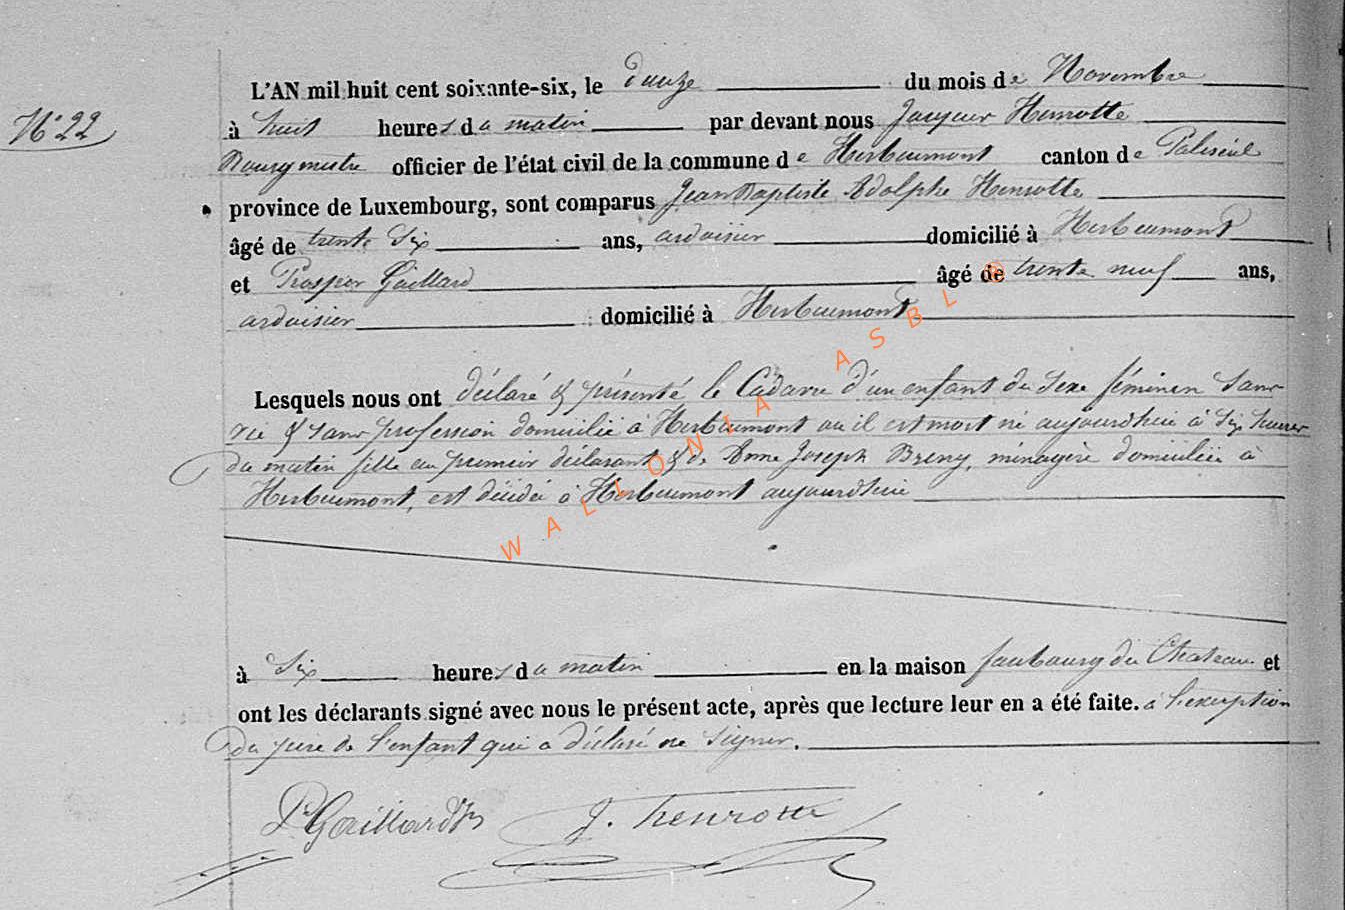 N° 22
L'AN mil huit cent soixante-six, le douze du mois de Novembre
à huit heures du matin par devant nous Jacques Henrotte
Bourgmestre officier de l'état civil de la commune de Herbeumont canton de Paliseul
province de Luxembourg, sont comparus Jean Baptiste Adolphe Henrotte
âgé de trente six ans, ardoisier domicilié à Herbeumont
et Prosper Gaillard âgé de trente neuf ans,
ardoisier domicilié à Herbeumont
Lesquels nous ont déclaré & présenté le Cadavre d'un enfant du sexe féminin sans
vie & sans profession domicilié à Herbeumont où il est mort né aujourdhui à six heures
du matin fille au premier déclarant & de Anne Joseph Breny, ménagère domiciliée à
Herbeumont, est décédé à Herbeumont aujourdhui
à six heures du matin en la maison faubourg du Chateau et
ont les déclarants signé avec nous le présent acte, après que lecture leur en a été faite. à l'exception
du père de l'enfant qui a déclaré ne signer.
P. Gaillard J. henrotte
WALLONIA ASBL ©